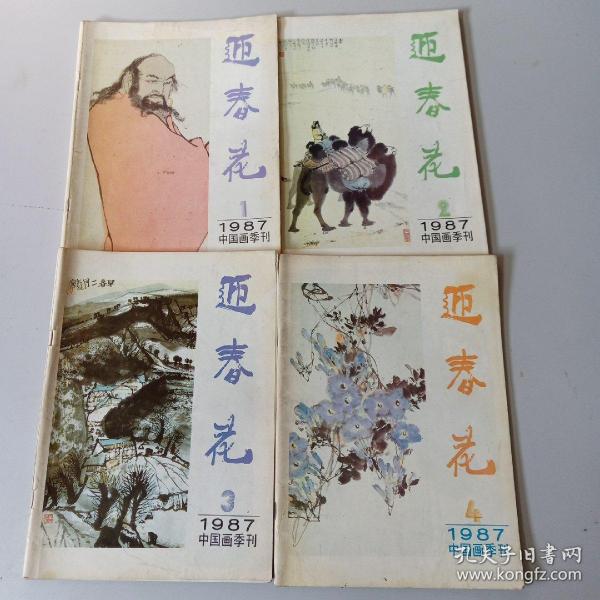 迎春花
1
1987
中国画季刊
迎春花
2
1987
中国画季刊
迎春花
3
1987
中国画季刊
迎春花
4
1987
中国画季刊
孔夫子旧书网
www.kongfz.com